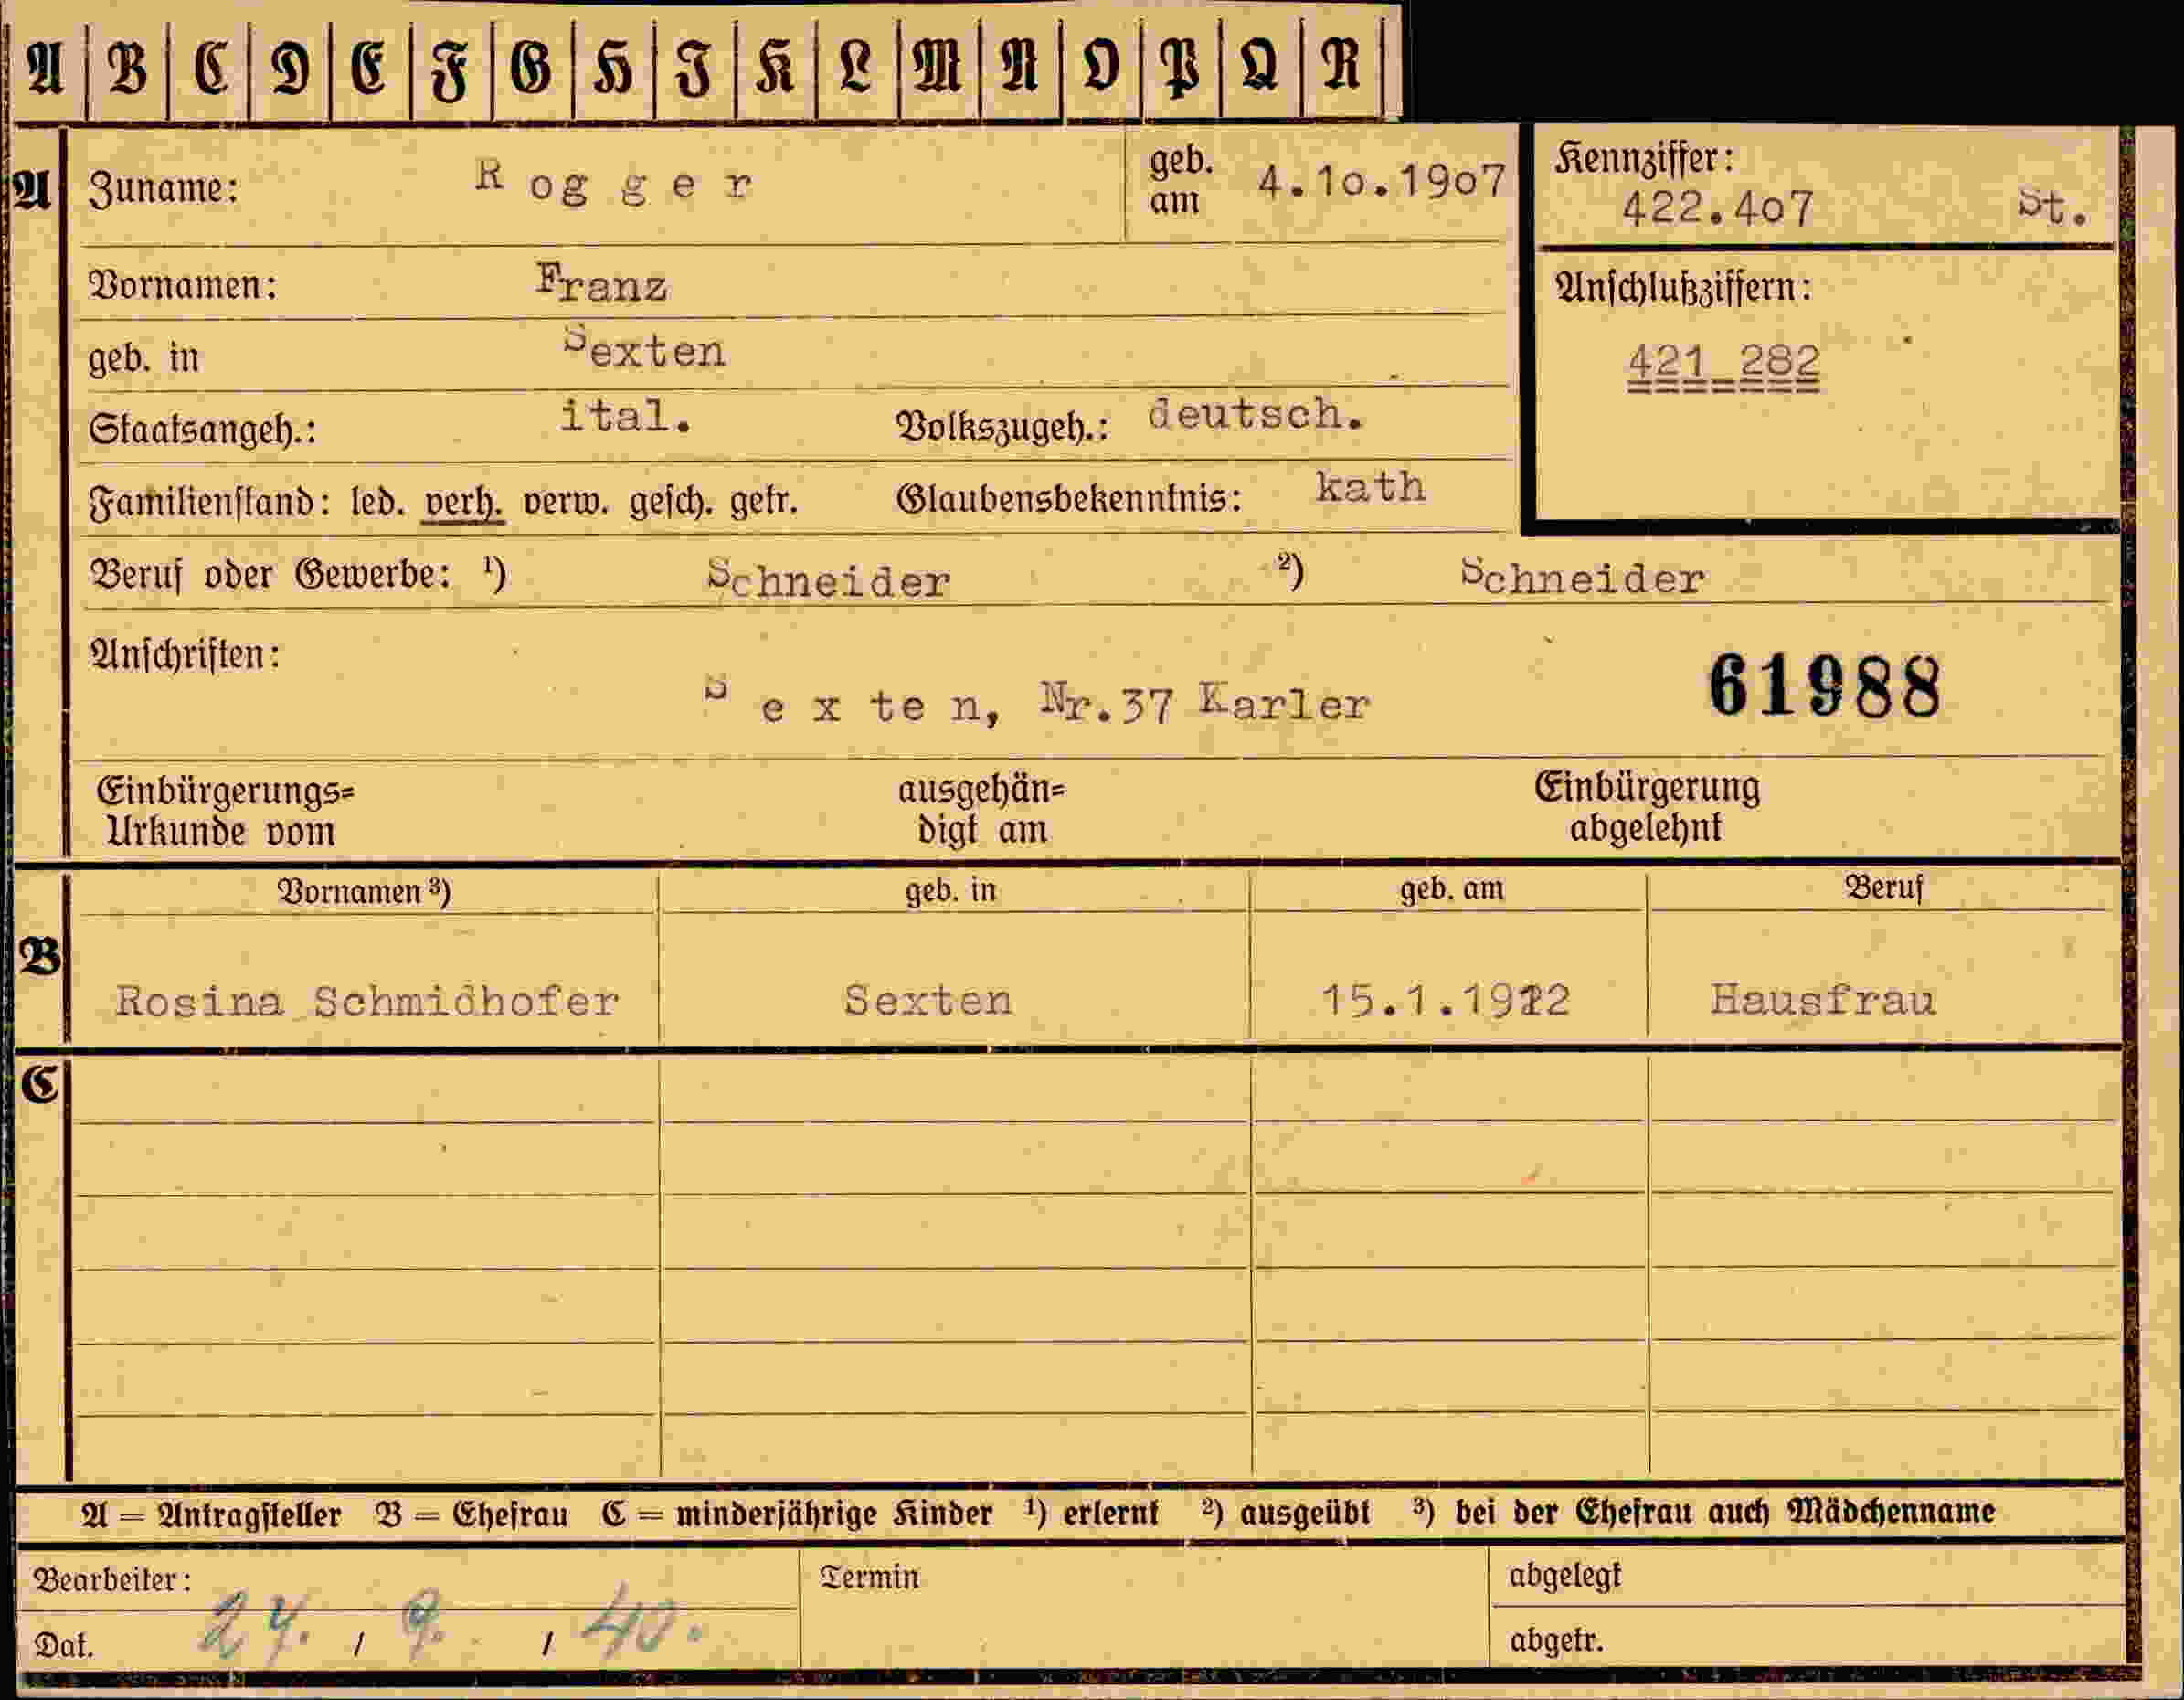 A B C D E F G H I K L M N O P Q R
A Zuname: Rogger geb. am 4.10.1907 Kennziffer: 422.407 St.
Vornamen: Franz Anschlußziffern:
geb. in Sexten 421 282
Staatsangeh.: ital. Volkszugeh.: deutsch.
Familienstand: led. verh. verw. gesch. getr. Glaubensbekenntnis: kath
Beruf oder Gewerbe: ¹) Schneider ²) Schneider
Anschriften: Sexten, Nr.37 Karler 61988
Einbürgerungs= ausgehän= Einbürgerung
Urkunde vom digt am abgelehnt
B Vornamen ³) geb. in geb. am Beruf
Rosina Schmidhofer Sexten 15.1.1912 Hausfrau
C
A = Antragsteller B = Ehefrau C = minderjährige Kinder ¹) erlernt ²) ausgeübt ³) bei der Ehefrau auch Mädchenname
Bearbeiter: Termin abgelegt
Dat. / 9. / 40. abgetr.